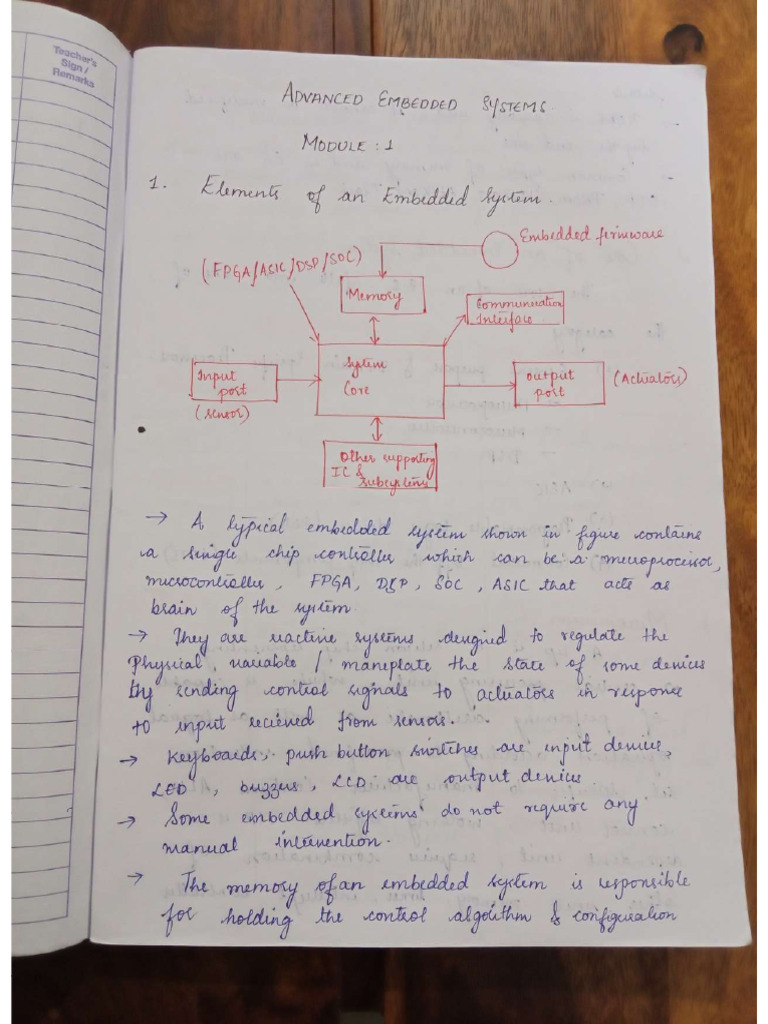 Teacher's
Sign /
Remarks
ADVANCED EMBEDDED SYSTEMS.
MODULE : 1
1. Elements of an Embedded System.
Embedded firmware
(FPGA/ASIC/DSP/SOC)
Memory
Communication
Interface
System
Core
Input
port
(sensor)
Output
port
(Actuators)
Other supporting
IC &
subsystems
→ A typical embedded system shown in figure contains
a single chip controller which can be a microprocessor,
microcontroller, FPGA, DSP, SOC, ASIC that acts as
brain of the system
→ They are reactive systems designed to regulate the
Physical, variable / maneplate the state of some devices
by sending control signals to actuators in response
to input recieved from sensors.
→ Keyboards, push button switches are input device,
LED, buzzers, LCD are output devices
→ Some embedded systems do not require any
manual intervention.
→ The memory of an embedded system is responsible
for holding the control algorithm & configuration